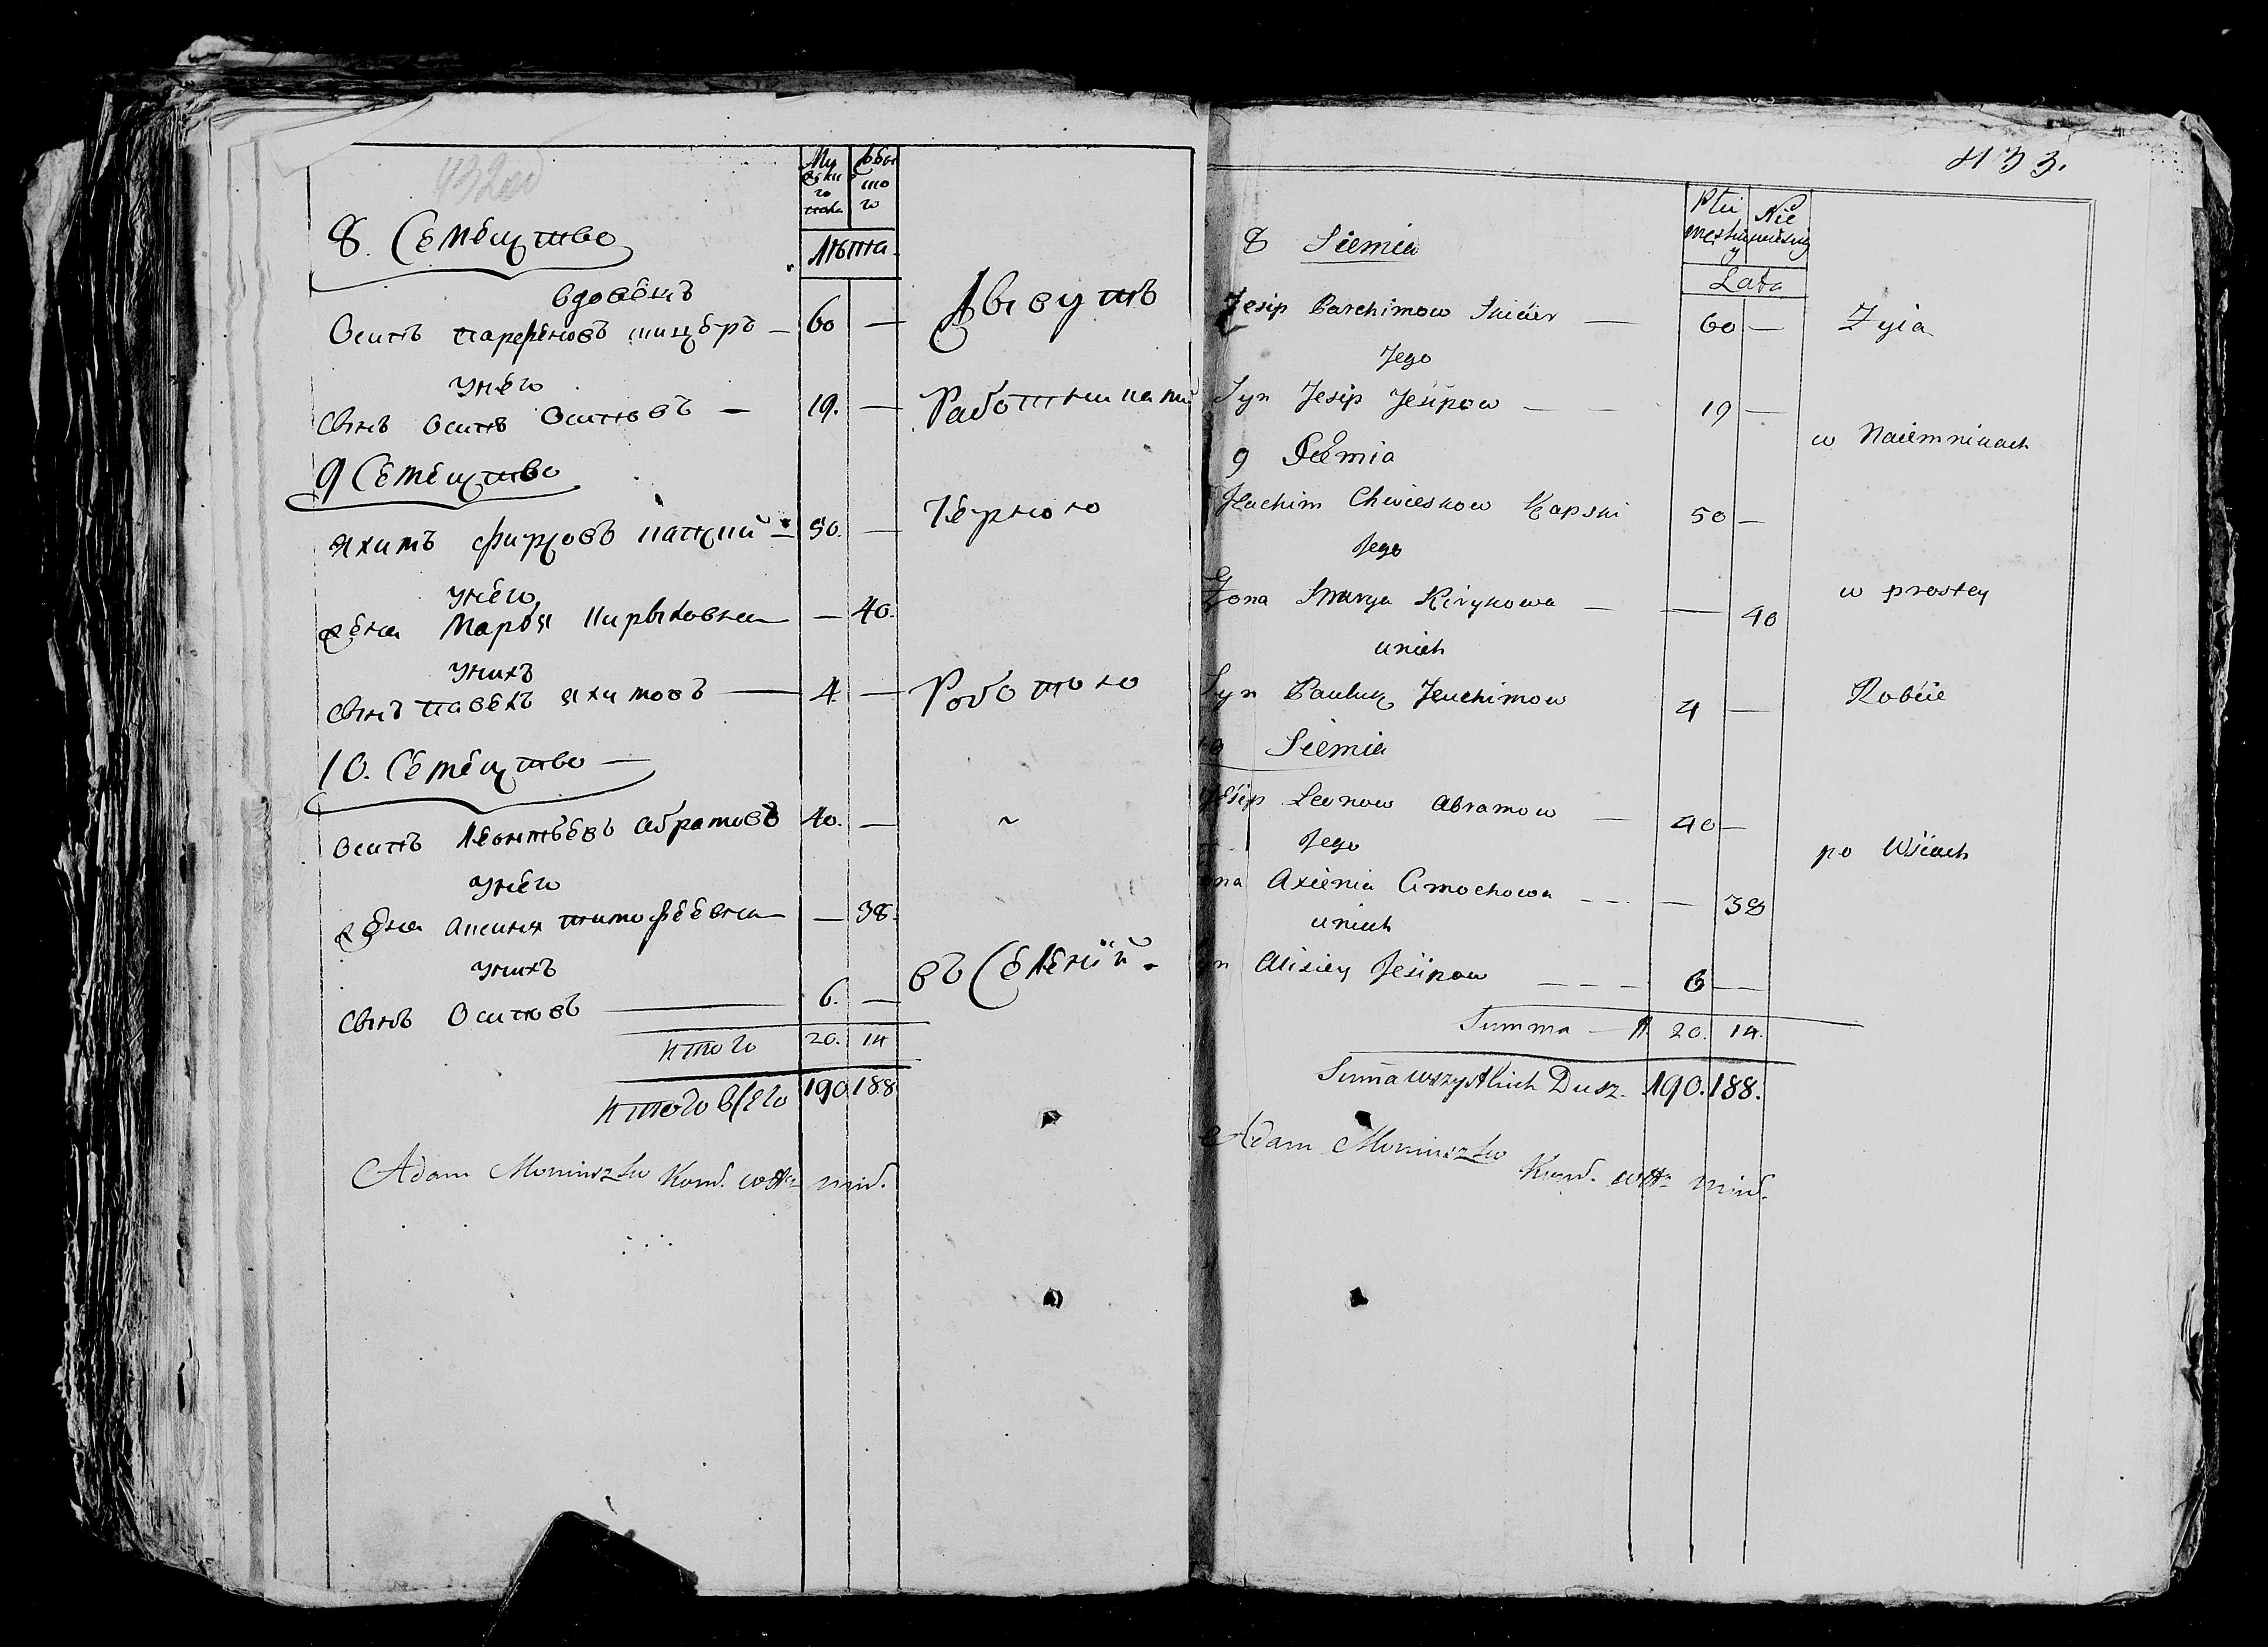 432об
Мужскаго пола
Женскаго
Лѣта.
8. Семеиство
вдовецъ
Осипъ парфеновъ шицеръ — 60 — Живутъ
унего
Сынъ Осипъ Осиповъ — 19. — Работниками
9 Семеиство
якимъ фирсовъ капский — 50. — Черною
унего
жена Марья Кирыковна — 40.
унихъ
Сынъ павелъ якимовъ — 4. — Роботою
10. Семеиство —
Осипъ Леонтьевъ Абрамовъ 40. — ~
унего
жена Аксинья тимофеевна — 38.
унихъ
Сынъ Осиповъ — 6. — въ Селении.
итого 20. 14
итого всего 190 188
Adam Moniuszko Kom. mińd.
433.
Płci męskiey Nie wieściey
Lata
8 Siemia
Jesip Parchimow — 60 — Zyia
Jego
Syn Jesip Jesipow — 19 —
w Naiemnikach
9 Siemia
Jeuchim Chwieskow Kapski 50 —
Jego
Zona Marya Kirykowa — — 40
w prostey
unich
Syn Pauluk Jeuchimow 4 — Robcie
10 Siemia
Jesip Leonow Abramow — 40 —
po Wsiach
Jego
ona Axienia Cimochowa — — 38
unich
yn Alixiey Jesipow — — — 6 —
Summa — 20. 14.
Suma wszystkich Dusz. 190. 188.
Adam Moniuszko
Kom. mińd.